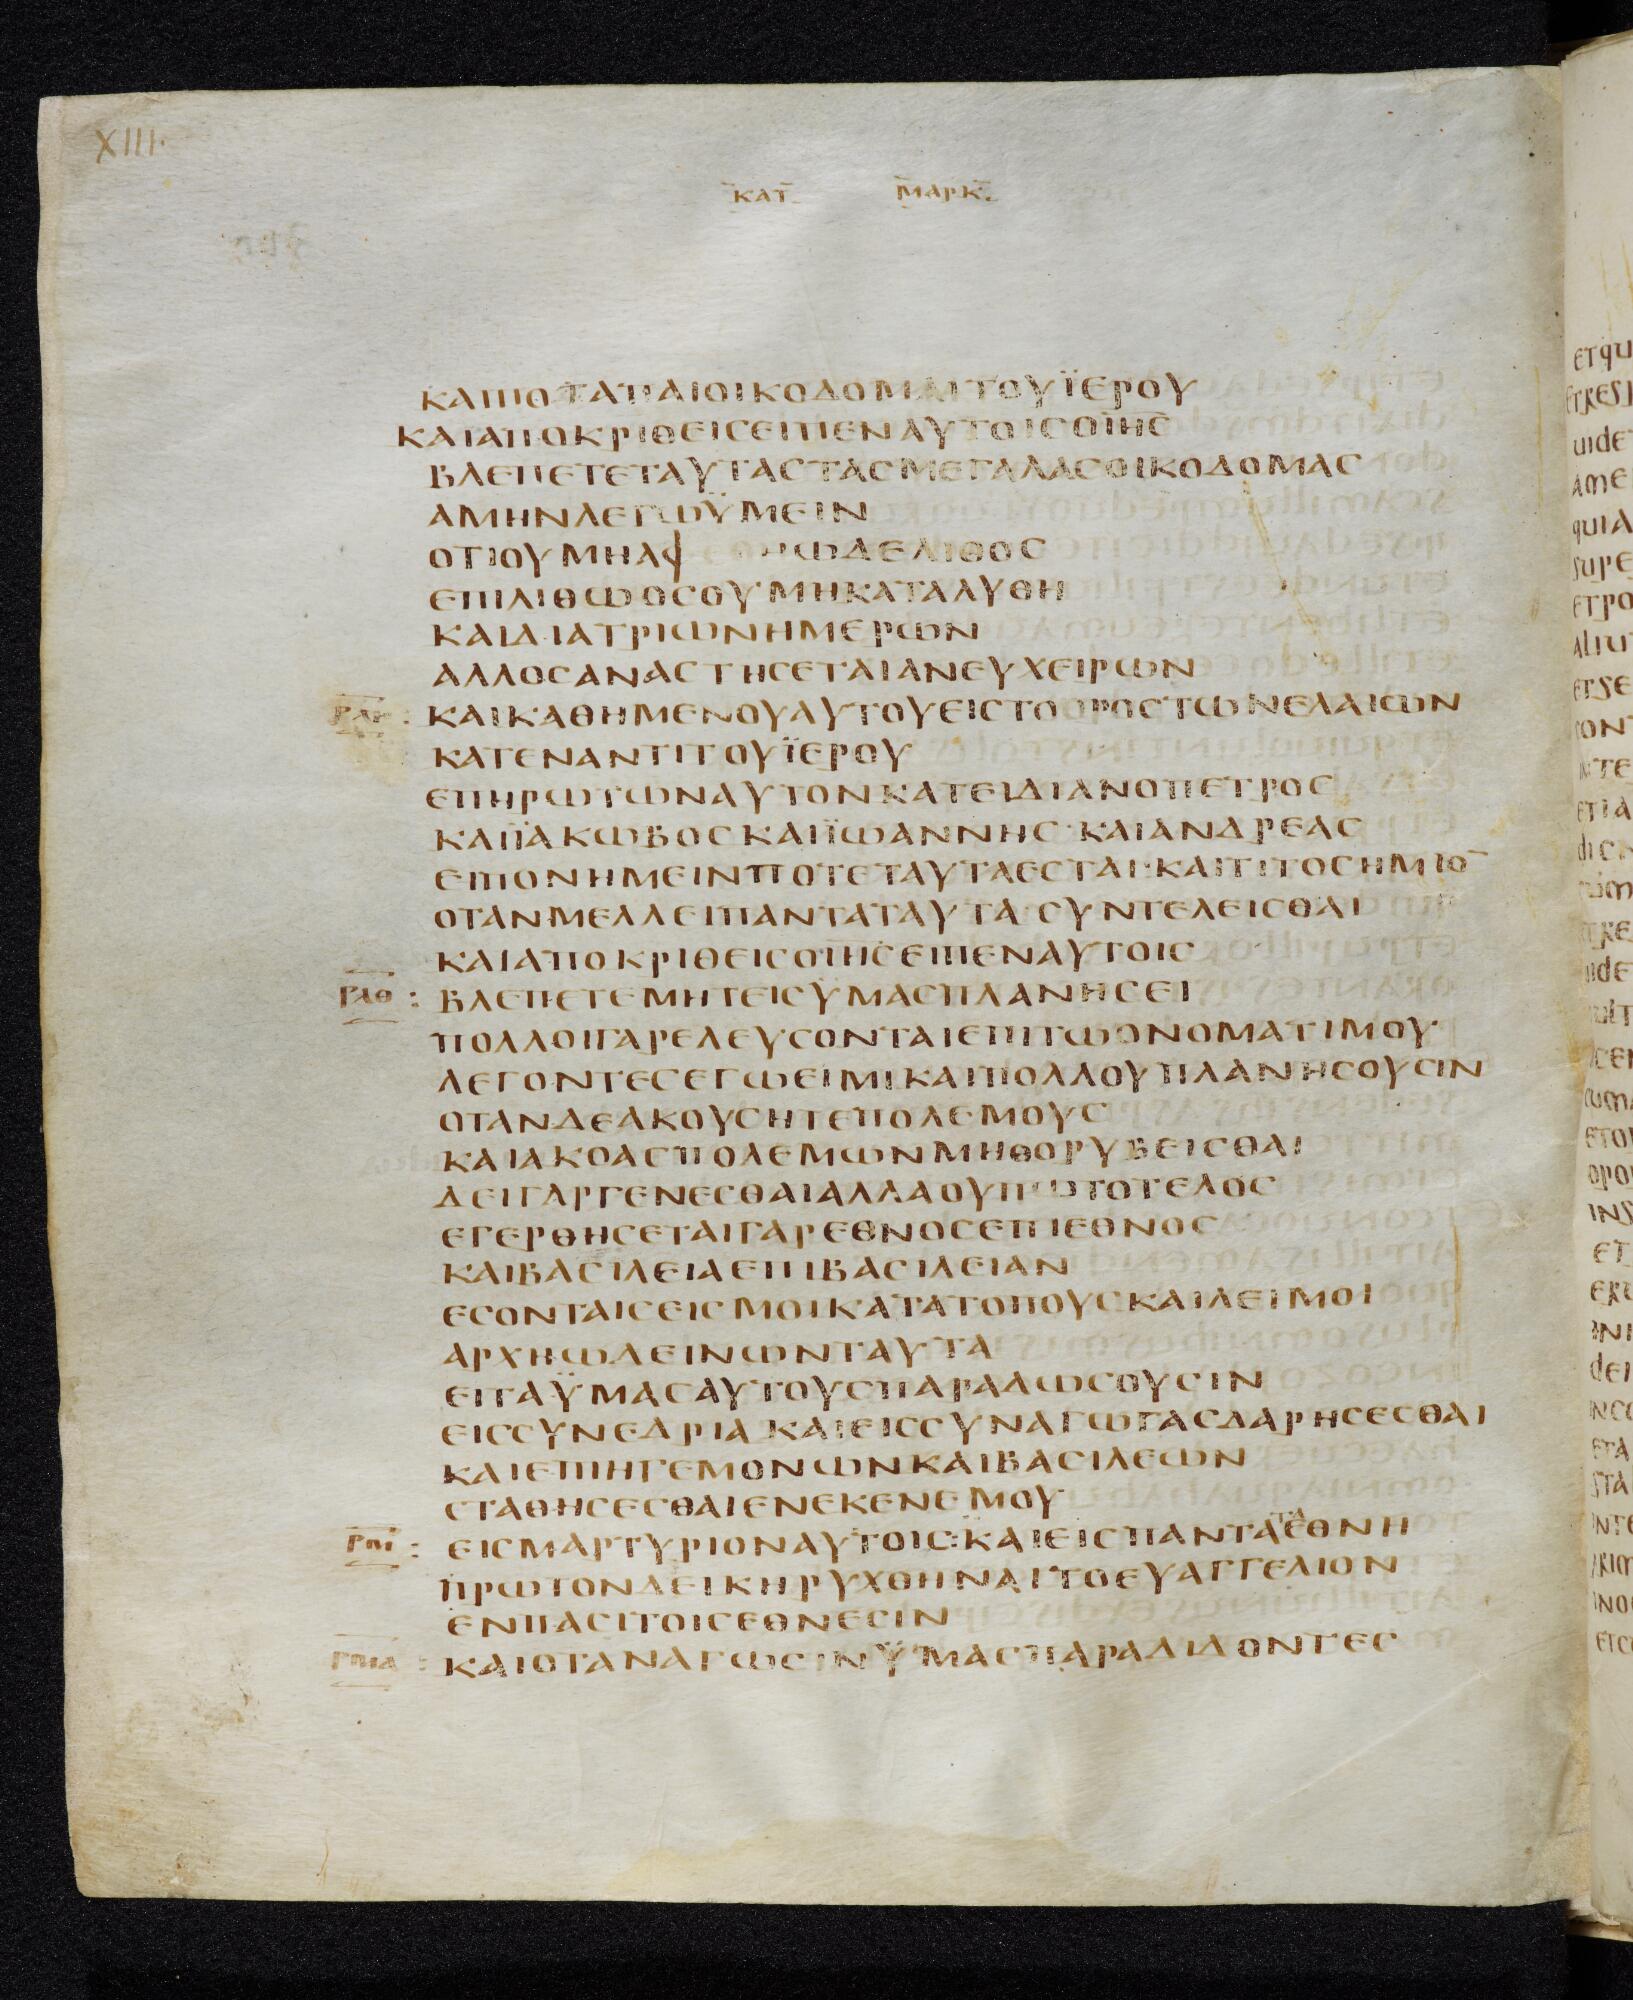 XIII.
ΚΑΤ ΜΑΡΚ.
ΚΑΙΠΟΤΑΠΑΙΟΙΚΟΔΟΜΑΙΤΟΥΪΕΡΟΥ
ΚΑΙΑΠΟΚΡΙΘΕΙСΕΙΠΕΝΑΥΤΟΙСΟΙΗС
ΒΛΕΠΕΤΕΤΑΥΤΑСΤΑСΜΕΓΑΛΑСΟΙΚΟΔΟΜΑС
ΑΜΗΝΛΕΓΩΫΜΕΙΝ
ΟΤΙΟΥΜΗΑΦΕΘΗΩΔΕΛΙΘΟС
ΕΠΙΛΙΘΩΟСΟΥΜΗΚΑΤΑΛΥΘΗ
ΚΑΙΔΙΑΤΡΙΩΝΗΜΕΡΩΝ
ΑΛΛΟСΑΝΑСΤΗСΕΤΑΙΑΝΕΥΧΕΙΡΩΝ
ΡΛΗ : ΚΑΙΚΑΘΗΜΕΝΟΥΑΥΤΟΥΕΙСΤΟΟΡΟСΤΩΝΕΛΑΙΩΝ
ΚΑΤΕΝΑΝΤΙΤΟΥΪΕΡΟΥ
ΕΠΗΡΩΤΩΝΑΥΤΟΝΚΑΤΕΙΔΙΑΝΟΠΕΤΡΟС
ΚΑΙΪΑΚΩΒΟСΚΑΙΪΩΑΝΝΗС·ΚΑΙΑΝΔΡΕΑС
ΕΙΠΟΝΗΜΕΙΝΠΟΤΕΤΑΥΤΑΕСΤΑΙ·ΚΑΙΤΙΤΟСΗΜΙΟ¯
ΟΤΑΝΜΕΛΛΕΙΠΑΝΤΑΤΑΥΤΑ·СΥΝΤΕΛΕΙСΘΑΙ
ΚΑΙΑΠΟΚΡΙΘΕΙСΟΙΗСΕΙΠΕΝΑΥΤΟΙС
ΡΛΘ : ΒΛΕΠΕΤΕΜΗΤΕΙСΥΜΑСΠΛΑΝΗСΕΙ
ΠΟΛΛΟΙΓΑΡΕΛΕΥСΟΝΤΑΙΕΠΙΤΩΟΝΟΜΑΤΙΜΟΥ
ΛΕΓΟΝΤΕСΕΓΩΕΙΜΙΚΑΙΠΟΛΛΟΥΠΛΑΝΗСΟΥСΙΝ
ΟΤΑΝΔΕΑΚΟΥСΗΤΕΠΟΛΕΜΟΥС
ΚΑΙΑΚΟΑСΠΟΛΕΜΩΝΜΗΘΟΡΥΒΕΙСΘΑΙ
ΔΕΙΓΑΡΓΕΝΕСΘΑΙΑΛΛΑΟΥΠΩΤΟΤΕΛΟС
ΕΓΕΡΘΗСΕΤΑΙΓΑΡΕΘΝΟСΕΠΙΕΘΝΟС
ΚΑΙΒΑСΙΛΕΙΑΕΠΙΒΑСΙΛΕΙΑΝ
ΕСΟΝΤΑΙСΕΙСΜΟΙΚΑΤΑΤΟΠΟΥСΚΑΙΛΕΙΜΟΙ
ΑΡΧΗΩΔΕΙΝΩΝΤΑΥΤΑ
ΕΙΤΑΫΜΑСΑΥΤΟΥСΠΑΡΑΔΩСΟΥСΙΝ
ΕΙССΥΝΕΔΡΙΑ ΚΑΙΕΙССΥΝΑΓΩΓΑСΔΑΡΗСΕСΘΑΙ
ΚΑΙΕΠΙΗΓΕΜΟΝΩΝΚΑΙΒΑСΙΛΕΩΝ
СΤΑΘΗСΕСΘΑΙΕΝΕΚΕΝΕΜΟΥ
ΡΜ : ΕΙСΜΑΡΤΥΡΙΟΝΑΥΤΟΙС:ΚΑΙΕΙСΠΑΝΤΑΤΑΕΘΝΗ
ΠΡΩΤΟΝΔΕΙΚΗΡΥΧΘΗΝΑΙΤΟΕΥΑΓΓΕΛΙΟΝ
ΕΝΠΑСΙΤΟΙСΕΘΝΕСΙΝ
ΡΜΑ : ΚΑΙΟΤΑΝΑΓΩСΙΝΫΜΑСΠΑΡΑΔΙΔΟΝΤΕС